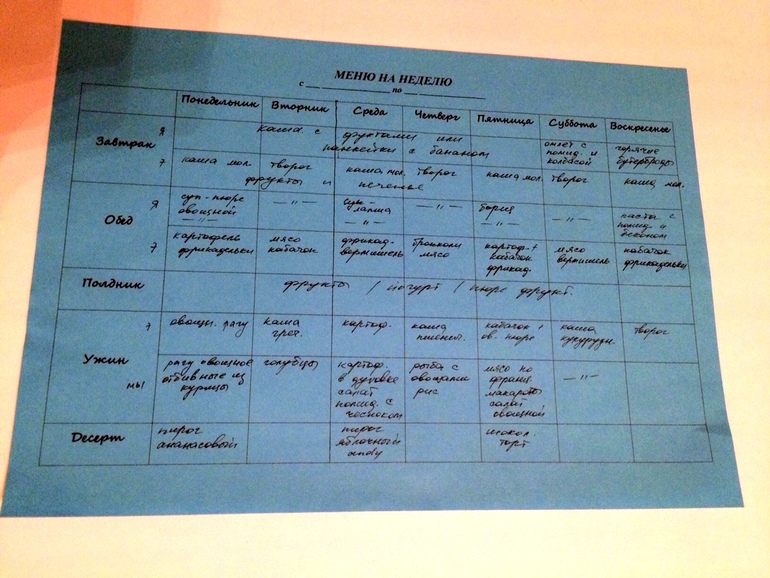 МЕНЮ НА НЕДЕЛЮ
с ___ ____________ по ____________
Понедельник Вторник Среда Четверг Пятница Суббота Воскресенье
Завтрак
Я каша с фруктами или
панкейки с бананом
омлет с
помид. и
колбасой
горячие
бутерброды
7 каша мол. творог каша мол. творог каша мол. творог каша мол.
фрукты и печенье
Обед
Я суп-пюре
овощной
— " —
— " —
суп-
лапша
— " —
— " —
борщ
— " —
— " —
паста с
помид. и
беконом
7 картофель
фрикадельки
мясо
кабачок
фрикад.
вермишель
брокколи
мясо
картоф. +
кабачок
фрикад.
мясо
вермишель
кабачок
фрикадельки
Полдник
фрукты / йогурт / пюре фрукт.
Ужин
7 овощн. рагу
каша
греч.
картоф.
каша
пшенич.
кабачок +
ов. пюре
каша
кукурузн.
творог
мы рагу овощное
отбивные из
курицы
голубцы
картоф.
в духовке
салат
помид. с
чесноком
рыба с
овощами
рис
мясо по
франц.
макароны
салат
овощной
— " —
Десерт
пирог
ананасовый
пирог
яблочный
andy
шокол.
торт